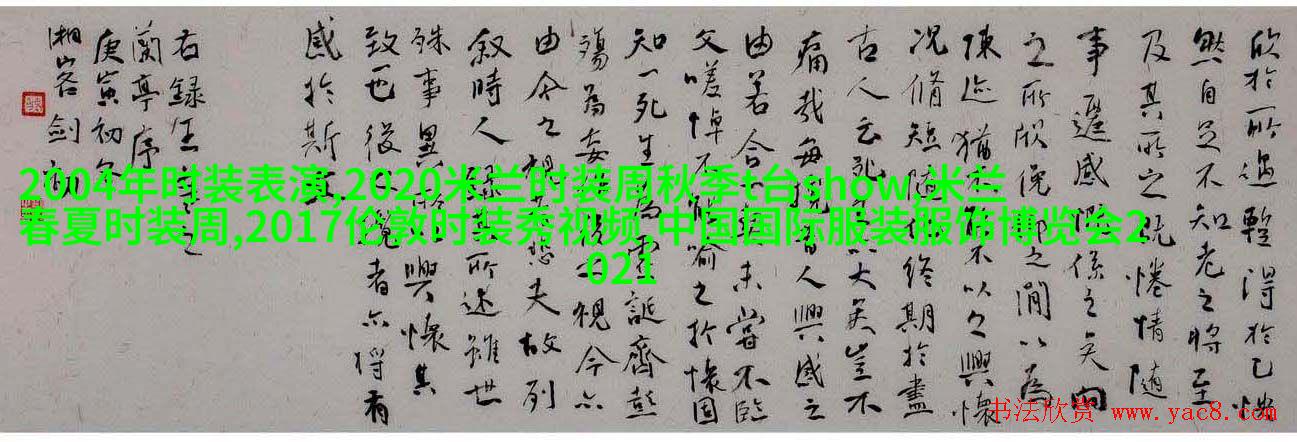 欣於所遇暫得於己快
然自足不知老之將至
及其所之既惓情隨
事遷感慨係之矣向
之所欣俛仰之間以為
陳迹猶不以之興懷
況脩短隨終期於盡
古人云死大矣豈不
痛哉每攬昔人興感之
由若合未嘗不臨
文嗟悼不能喻之於懷固
知一死生為虛誕齊彭
殤為妄後之視今亦
由今之視悲夫故列
敘時人所述雖世
殊事異所興懷其
致一也後覽者亦將有
感於斯
右錄王之
蘭亭序
庚寅初冬
湘客劍
2004年时装表演,2020米兰时装周秋季t台show,米兰
春夏时装周,2017伦敦时装秀视频,中国国际服装服饰博览会2
021
书法欣赏 www.yac8.com